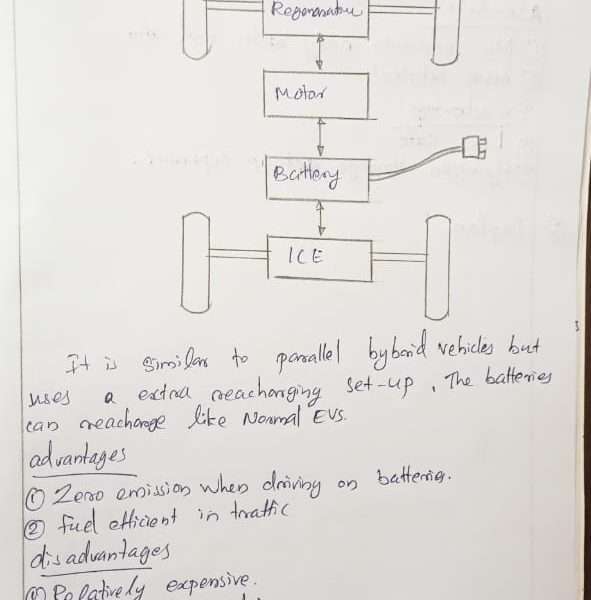 Regenerator
Motor
Battery
ICE
It is similar to parallel hybrid vehicles but
uses a extra reacharging set-up. The batteries
can reacharge like Normal EVs.
advantages
① Zero emission when driving on batteries.
② fuel efficient in traffic
disadvantages
① Relatively expensive.